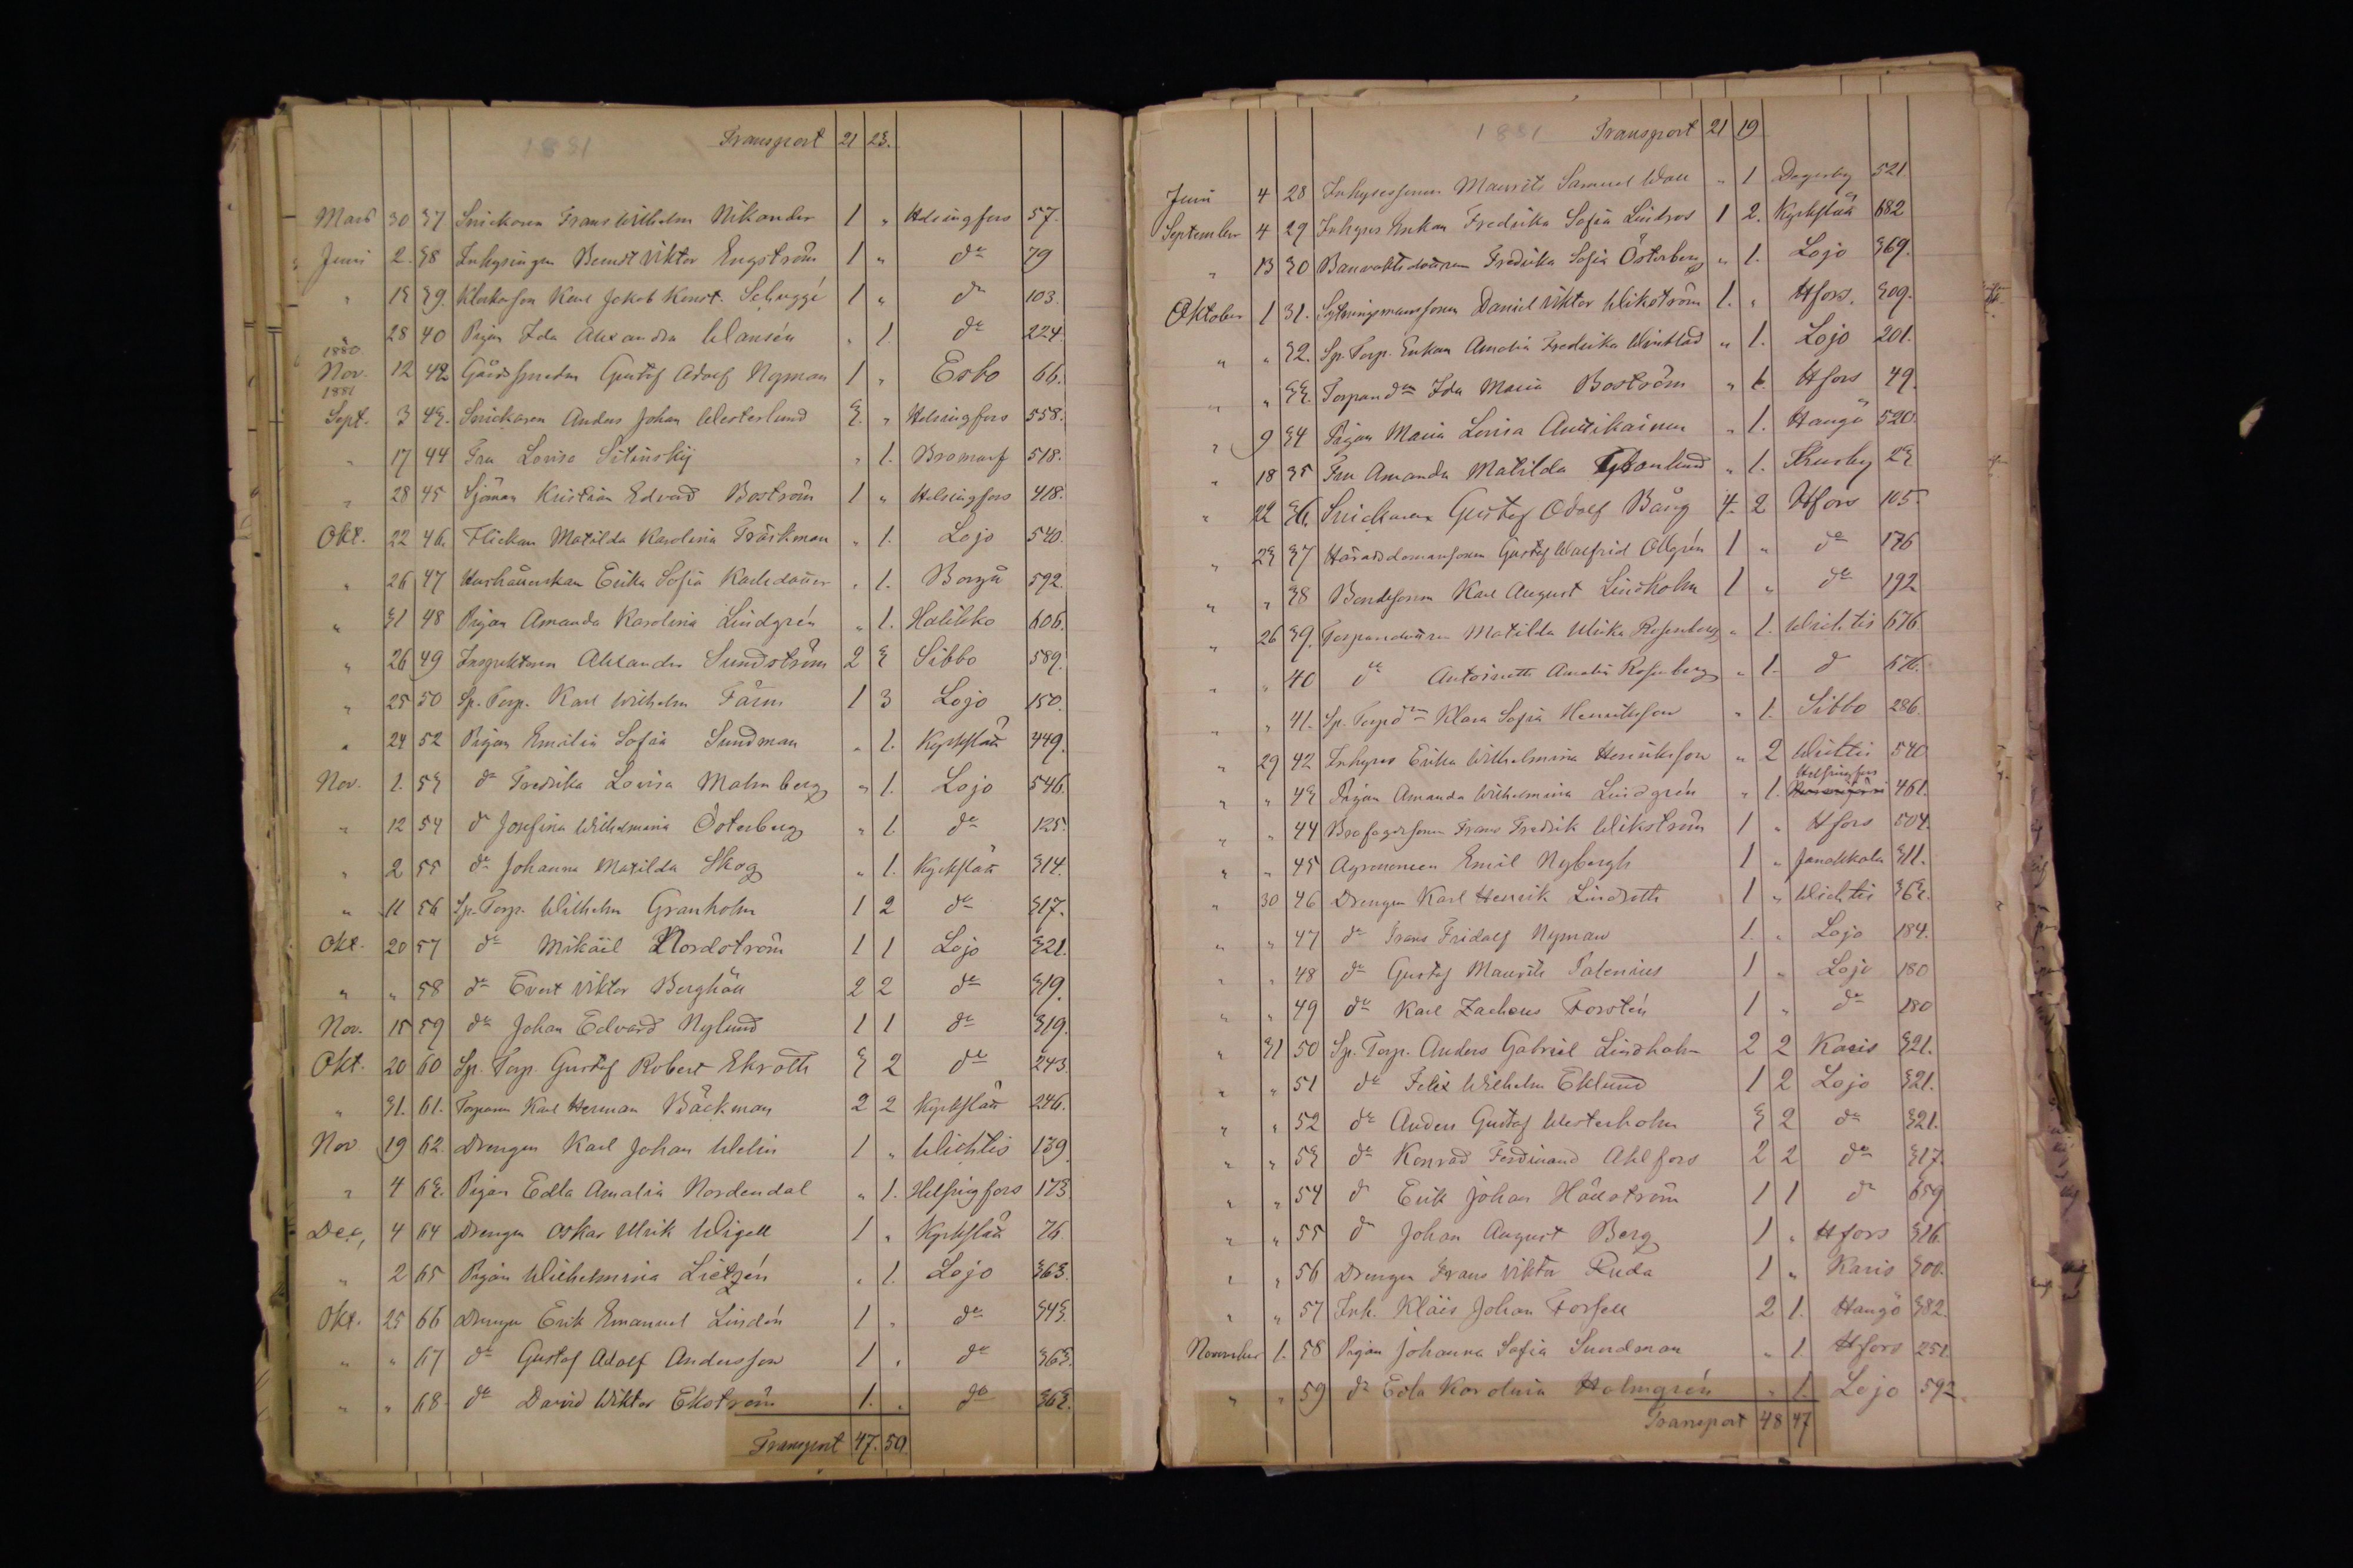 1881 Transport 21 23.
Mars 30 37 Snickaren Frans Wilhelm Nikander 1 " Helsingfors 57.
Juni 2. 38 Inhysingen Berndt Viktor Engström 1 " do 79
" 13 39. Klockarson Karl Jakob Konst. 1 " do 103.
" 28 40 Pigan Ida Alexandra Wansén " 1. do 224.
1880
Nov. 12 42 Gustaf Adolf Nyman 1 " Esbo 66.
1881
Sept. 3 43. Snickaren Anders Johan Westerlund 3. " Helsingfors 558.
" 17 44 Fru Lovisa " 1. Bromarf 518.
" 28 45 Sjöman Kristian Edvard Boström 1 " Helsingfors 418.
Okt. 22 46. Flickan Matilda Karolina Träskman " 1. Lojo 540.
" 26 47 Hushållerskan Erika Sofia " 1. Borgå 592.
" 31 48 Pigan Amanda Karolina Lindgrén " 1. Halikko 606.
" 26 49 Inspektoren Alexander Sundström 2 3 Sibbo 589.
" 25 50 Sp. Torp. Karl Wilhelm Färm 1 3 Lojo 150.
" 24 52 Pigan Emilia Sofia Sundman " 1. Kyrkslätt 449.
Nov. 1. 53 do Fredrika Lovisa Malmberg " 1. Lojo 546.
" 12 54 do Josefina Wilhelmina Österberg " 1. do 125.
" 2 55 do Johanna Matilda Skog " 1. Kyrkslätt 314.
" 11 56 Sp. Torp. Wilhelm Granholm 1 2 do 317.
Okt. 20 57 do Mikäel Nordström 1 1 Lojo 321.
" " 58 do Evert Viktor Berghäll 2 2 do 319.
Nov. 15 59 do Johan Edvard Nylund 1 1 do 319.
Okt. 20 60 Sp. Torp. Gustaf Robert Ekroth 3 2 do 243.
" 31. 61. Torparen Karl Herman Bäckman 2 2 Kyrkslätt 246.
Nov 19 62. Drengen Karl Johan Welin 1 " Wichtis 139.
" 4 63. Pigan Edla Amalia Nordendal " 1. Helsingfors 173
Dec, 4 64 Drengen Oskar Ulrik Wigell 1 " Kyrkslätt 76.
" 2 65 Pigan Wilhelmina Lietzén " 1. Lojo 363.
Okt. 25 66 Drengen Erik Emanuel Lindén 1 " do 343.
" " 67 do Gustaf Adolf Andersson 1 " do 363.
" " 68 do David Wiktor Ekström 1. " do 363.
Transport 47. 50.
1881 Transport 21 19
Juni 4 28 Inhysessonen Maurits Samuel Wall " 1 Degerby 521.
September 4 29 Inhyses Enkan Fredrika Sofia Lindros 1 2. Kyrkslätt 682
" 13 30 Banvaktsdottren Fredrika Sofia Österberg " 1. Lojo 369.
Oktober 1 31. Daniel Viktor Wikström 1. " Hfors. 309.
" " 32. Sp. Torp. Enkan Amalia Fredrika Windblad " 1. Lojo 201.
" " 33. Torpar Ida Maria Boström " 1. Hfors 49.
" 9 34 Pigan Maria Lovisa Anttikainen " 1. Hangö 520.
" 18 35 Fru Amanda Matilda " 1. 23
" 22 36. Snickaren Gustaf Adolf Bång 4. 2 Hfors 105.
" 23 37 Häradsdomarsonen Gustaf Walfrid Ollgrén 1 " do 176
" " 38 Bondesonen Karl August Lindholm 1 " do 192
" 26 39. Torparedottren Matilda Ulrika Rosenberg " 1. Wichtis 676
" " 40 do Antoinette Amalia Rosenberg " 1. d 676.
" " 41. Sp. Torp do Klara Sofia Henriksson " 1. Sibbo 286.
" 29 42 Inhyses Erika Wilhelmina Henriksson " 2 Wichtis 540
Helsingfors
" " 43 Pigan Amanda Wilhelmina Lindgrén " 1. 461.
" " 44 Frans Fredrik Wikström 1 " Hfors 504.
" " 45 Agronomen Emil Nybergh 1 " Janakkala 311.
" 30 46 Drengen Karl Henrik Lindroth 1 " Wichtis 363.
" " 47 do Frans Fridolf Nyman 1. " Lojo 184.
" " 48 do Gustaf Maurits Palenius 1 " Lojo 180
" " 49 do Karl Zacheus Forstén 1 " do 180
" 31 50 Sp. Torp. Anders Gabriel Lindholm 2 2 Karis 321.
" " 51 do Felix Wilhelm Eklund 1 2 Lojo 321.
" " 52 do Anders Gustaf Westerholm 3 2 do 321.
" " 53 do Konrad Ferdinand Ahlfors 2 2 do 317.
" " 54 do Erik Johan Hällström 1 1 do 659
" " 55 do Johan August Berg 1 " Hfors 316.
" " 56 Drengen Frans Viktor Ruda 1 " Karis 300.
" " 57 Inh. Kläis Johan Forsell 2 1. Hangö 382.
November 1. 58 Pigan Johanna Sofia Sundman " 1. Hfors 251.
" " 59 do Edla Karolina Holmgrén " 1. Lojo 592.
Transport 48 47